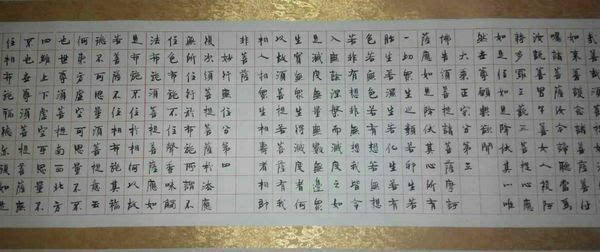 哉善哉須菩提如汝所說
如來善護念諸菩薩善付
囑諸菩薩汝今諦聽當為
汝說善男子善女人發阿
耨多羅三藐三菩提心應
如是住如是降伏其心唯
然世尊願樂欲聞
大乘正宗分第三
佛告須菩提諸菩薩摩訶
薩應如是降伏其心所有
一切眾生之類若卵生若
胎生若濕生若化生若有
色若無色若有想若無想
若非有想非無想我皆令
入無餘涅槃而滅度之如
是滅度無量無數無邊眾
生實無眾生得滅度者何
以故須菩提若菩薩有我
相人相眾生相壽者相即
非菩薩
妙行無住分第四
復次須菩提菩薩於法應
無所住行於布施所謂不
住色布施不住聲香味觸
法布施須菩提菩薩應如
是布施不住於相何以故
若菩薩不住相布施其福
德不可思量須菩提於意云
何東方虛空可思量不不
也世尊須菩提南西北方
四維上下虛空可思量不
不也世尊須菩提菩薩無
住相布施福德亦復如是